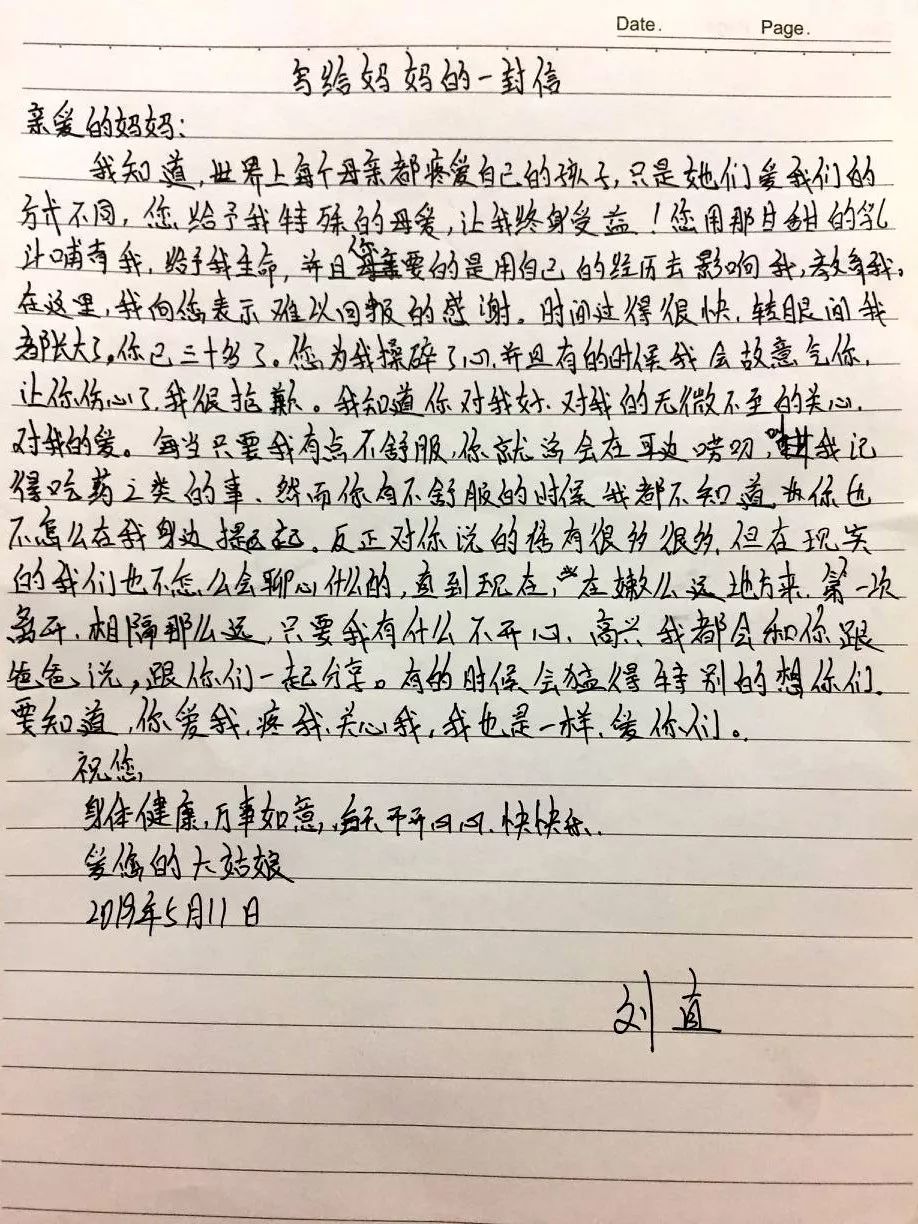 Date.
Page.
写给妈妈的一封信
亲爱的妈妈:
我知道,世界上每个母亲都疼爱自己的孩子,只是她们爱我们的
方式不同,您给予我特殊的母爱,让我终身受益!您用那甘甜的乳
汁哺育我,给予我生命,并且您要的是用自己的经历去影响我,教育我。
在这里,我向您表示难以回报的感谢。时间过得很快,转眼间我
都长大了。你已三十多了。您为我操碎了心,并且有的时候我会故意气你,
让你伤心了,我很抱歉。我知道你对我好、对我的无微不至的关心,
对我的爱。每当只要我有点不舒服,你就总会在耳边唠叨,我记
得吃药之类的事、然而你有不舒服的时候我都不知道,你也
不怎么在我身边提起。反正对你说的话有很多很多,但在现实
的我们也不怎么会聊心什么的,直到现在,在嫩么远地方来,第一次
离开,相隔那么远,只要我有什么不开心、高兴我都会和你跟
爸爸说,跟你们一起分享。有的时候会猛得特别的想你们,
要知道,你爱我,疼我,关心我,我也是一样,爱你们。
祝您,
身体健康,万事如意,每天开开心心、快快乐
爱您的大姑娘
2019年5月11日
刘直